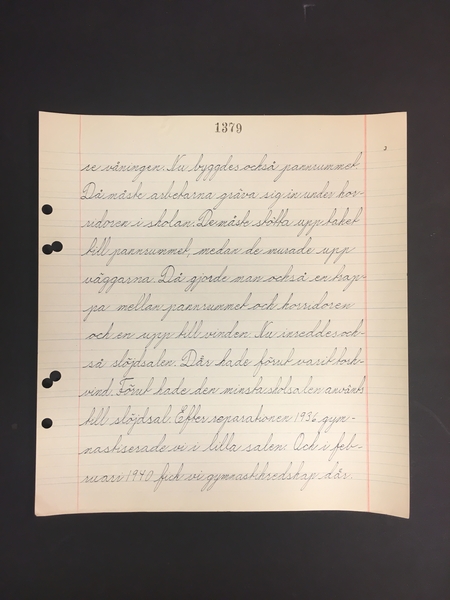 1379
2
re våningen. Nu byggdes också pannrummet.
Då måste arbetarna gräva sig in under kor-
ridoren i skolan. De måste stötta upp taket
till pannrummet, medan de murade upp
väggarna. Då gjorde man också en trap-
pa mellan pannrummet och korridoren
och en upp till vinden. Nu inreddes ock-
så slöjdsalen. Där hade förut varit tork-
vind. Förut hade den minsta skolsalen använts
till slöjdsal. Efter reparationen 1936 gym-
nastiserade vi i lilla salen. Och i feb-
ruari 1940 fick vi gymnastikredskap där.